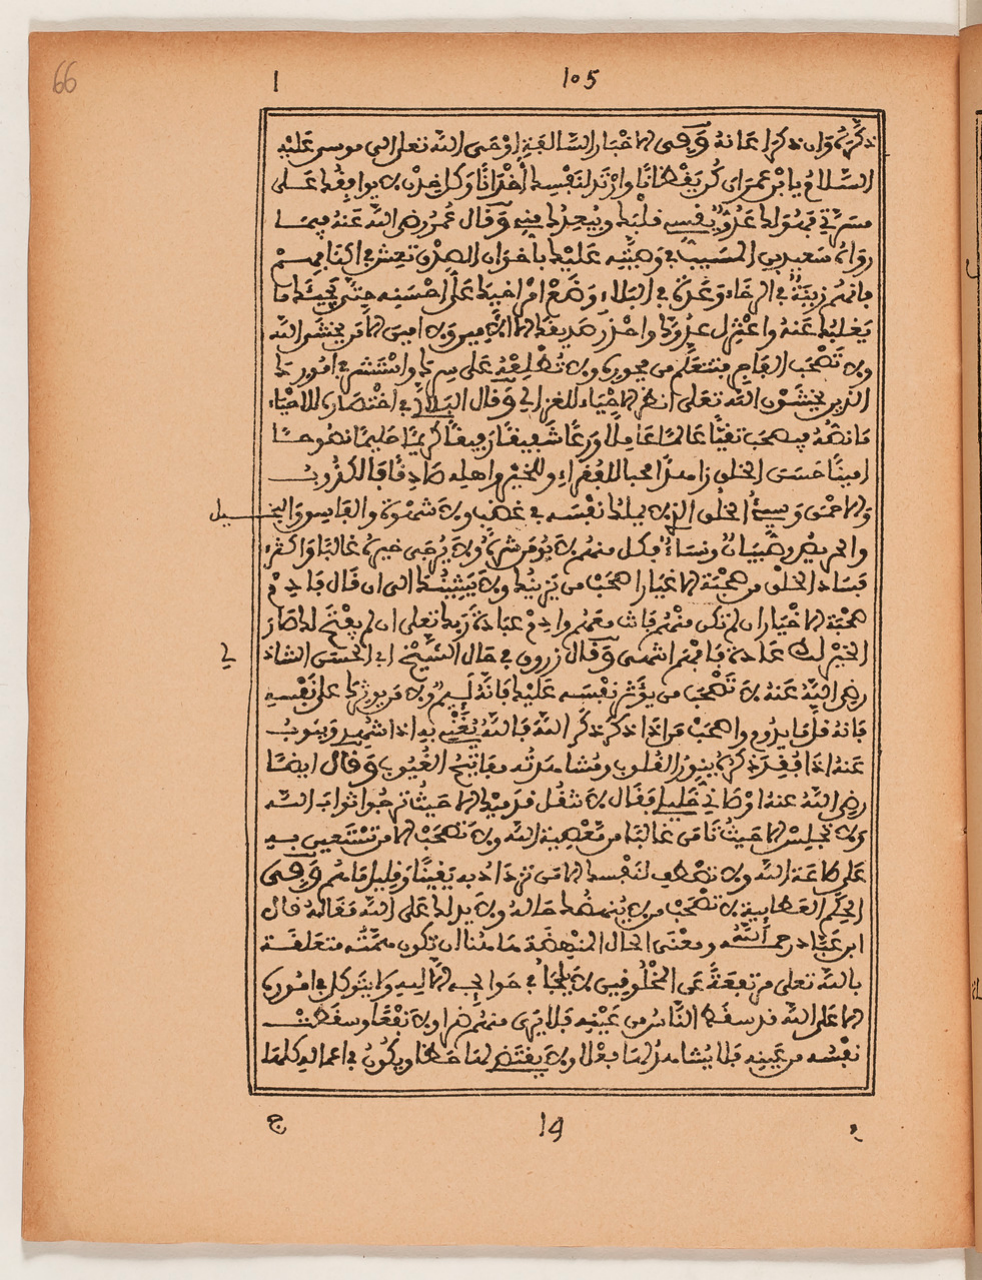 66
1
105
ذكره وان ذكر اعانه وفى الاخبار السالفة اوحى الله تعلى الى موسى عليه
السلام يا بن عمران كن يقظانا وارتد لنفسك أخدانا وكل خدن لا يوافقك على
مسرتي فهو لك عدو يقسي قلبك ويبعدك مني وقال عمر رضي الله عنه فيما
رواه سعيد بن المسيب في وصيته عليك باخوان الصدق تعش في اكنافهم
فانهم زينة في الرخاء وعدة في البلاء وضع امر اخيك على احسنه حتى يجيئك ما
يغلبك عنه واعتزل عدوك واحذر صديقك الا الامين ولا امين الا من يخشى الله
ولا تصحب الفاجر فتتعلم من فجوره ولا تطلعه على سرك واستشر في امورك
الذين يخشون الله تعلى انظر الاحياء للغزالي وقال البلالي في اختصاره للاحياء
ما نصه فيصحب تقيا عالما عاملا ورعا شفيقا رفيقا كريما حليما نصوحا
امينا حسن الخلق زاهدا محبا للفقراء وللخير واهله صادقا فالكذوب
والاحمق وسيئ الخلق الذي لا يملك نفسه في غضب ولا شهوة والفاسق والبخيل
والحريص وصبيان ونساء فكل منهم لا يومن شره ولا يرجى خيره غالبا واكثر
فساد الخلق من صحبة الاغيار اصحب من يزينك ولا يشينك الى ان قال فادم
صحبة الاخيار ان لم تكن منهم فانت معهم وادم عبادة ربك تعلى ان لم يفتح لك صار
الخير لك عادة فافهم انتهى وقال زروق في مقال الشيخ ابى الحسن الشاذلي
رضي الله عنه لا تصحب من يؤثر نفسه عليك فانه لئيم ولا من يوثرك على نفسه
فانه قل ما يدوم واصحب من اذا ذكر ذكر الله فالله يغني به اذا شهد وينوب
عنه اذا فقد ذكره ينور القلوب ومشاهدته مفاتيح الغيوب وقال ايضا
رضي الله عنه اوصاني خليلي فقال لا تنقل قدميك الا حيث ترجوا ثواب الله
ولا تجلس الا حيث تامن غالبا من معصية الله ولا تصحب الا من تستعين به
على طاعة الله ولا تصطف لنفسك الا من تزداد به يقينا وقليل ما هم وفى
الحكم العطايية لا تصحب من لا ينهضك حاله ولا يدلك على الله مقاله قال
ابن عباد رحمه الله ومعنى الحال المنهضة هاهنا ان تكون همته متعلقة
بالله تعلى مرتفعة عن المخلوقين لا يلجأ في حوائجه الا اليه ولا يتوكل في اموره
الا على الله قد سقط الناس من عينيه فلا يرى منهم ضرا ولا نفعا وسقطت
نفسه من عينيه فلا يشاهد لها فعلا ولا يقتضي لها حظا ويكون في اعماله كلها
ج
19